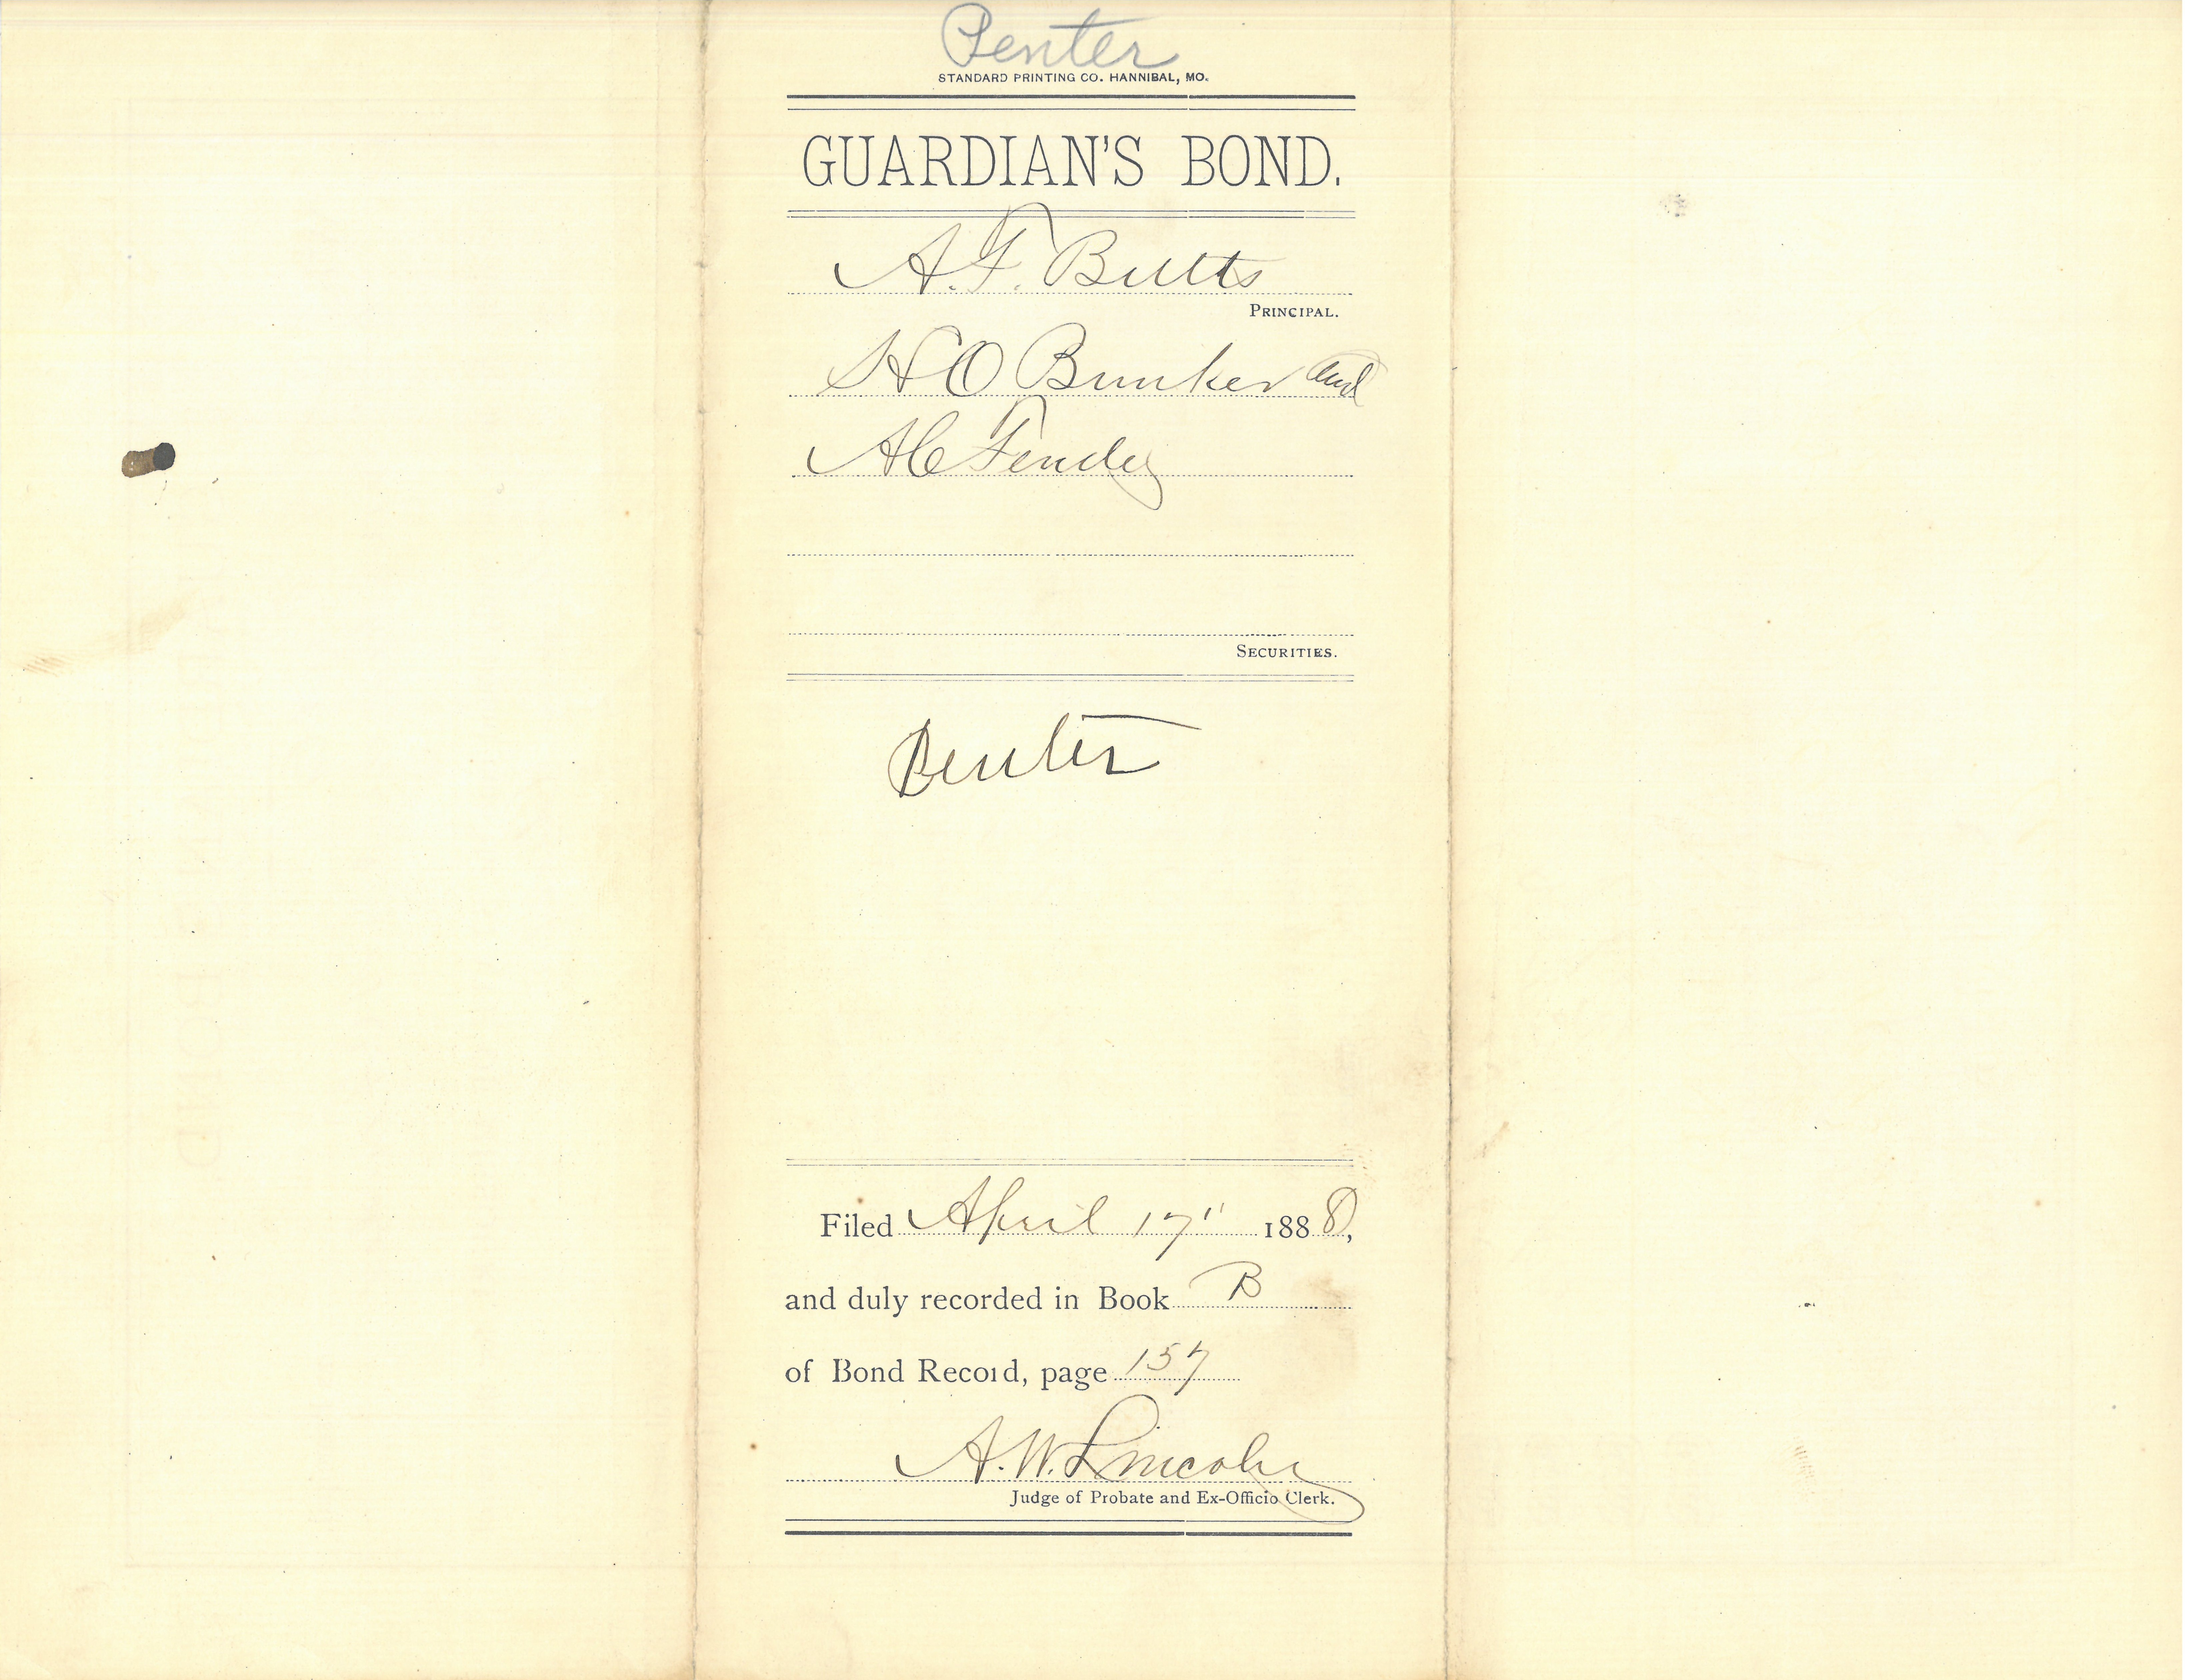 Penter
STANDARD PRINTING CO. HANNIBAL, MO.
GUARDIAN'S BOND.
A. F. Butts
PRINCIPAL.
H O Bunker and
A C Fendey
SECURITIES.
Penter
Filed April 17" 1888,
and duly recorded in Book B
of Bond Record, page 157
A. W. Lincoln
Judge of Probate and Ex-Officio Clerk.